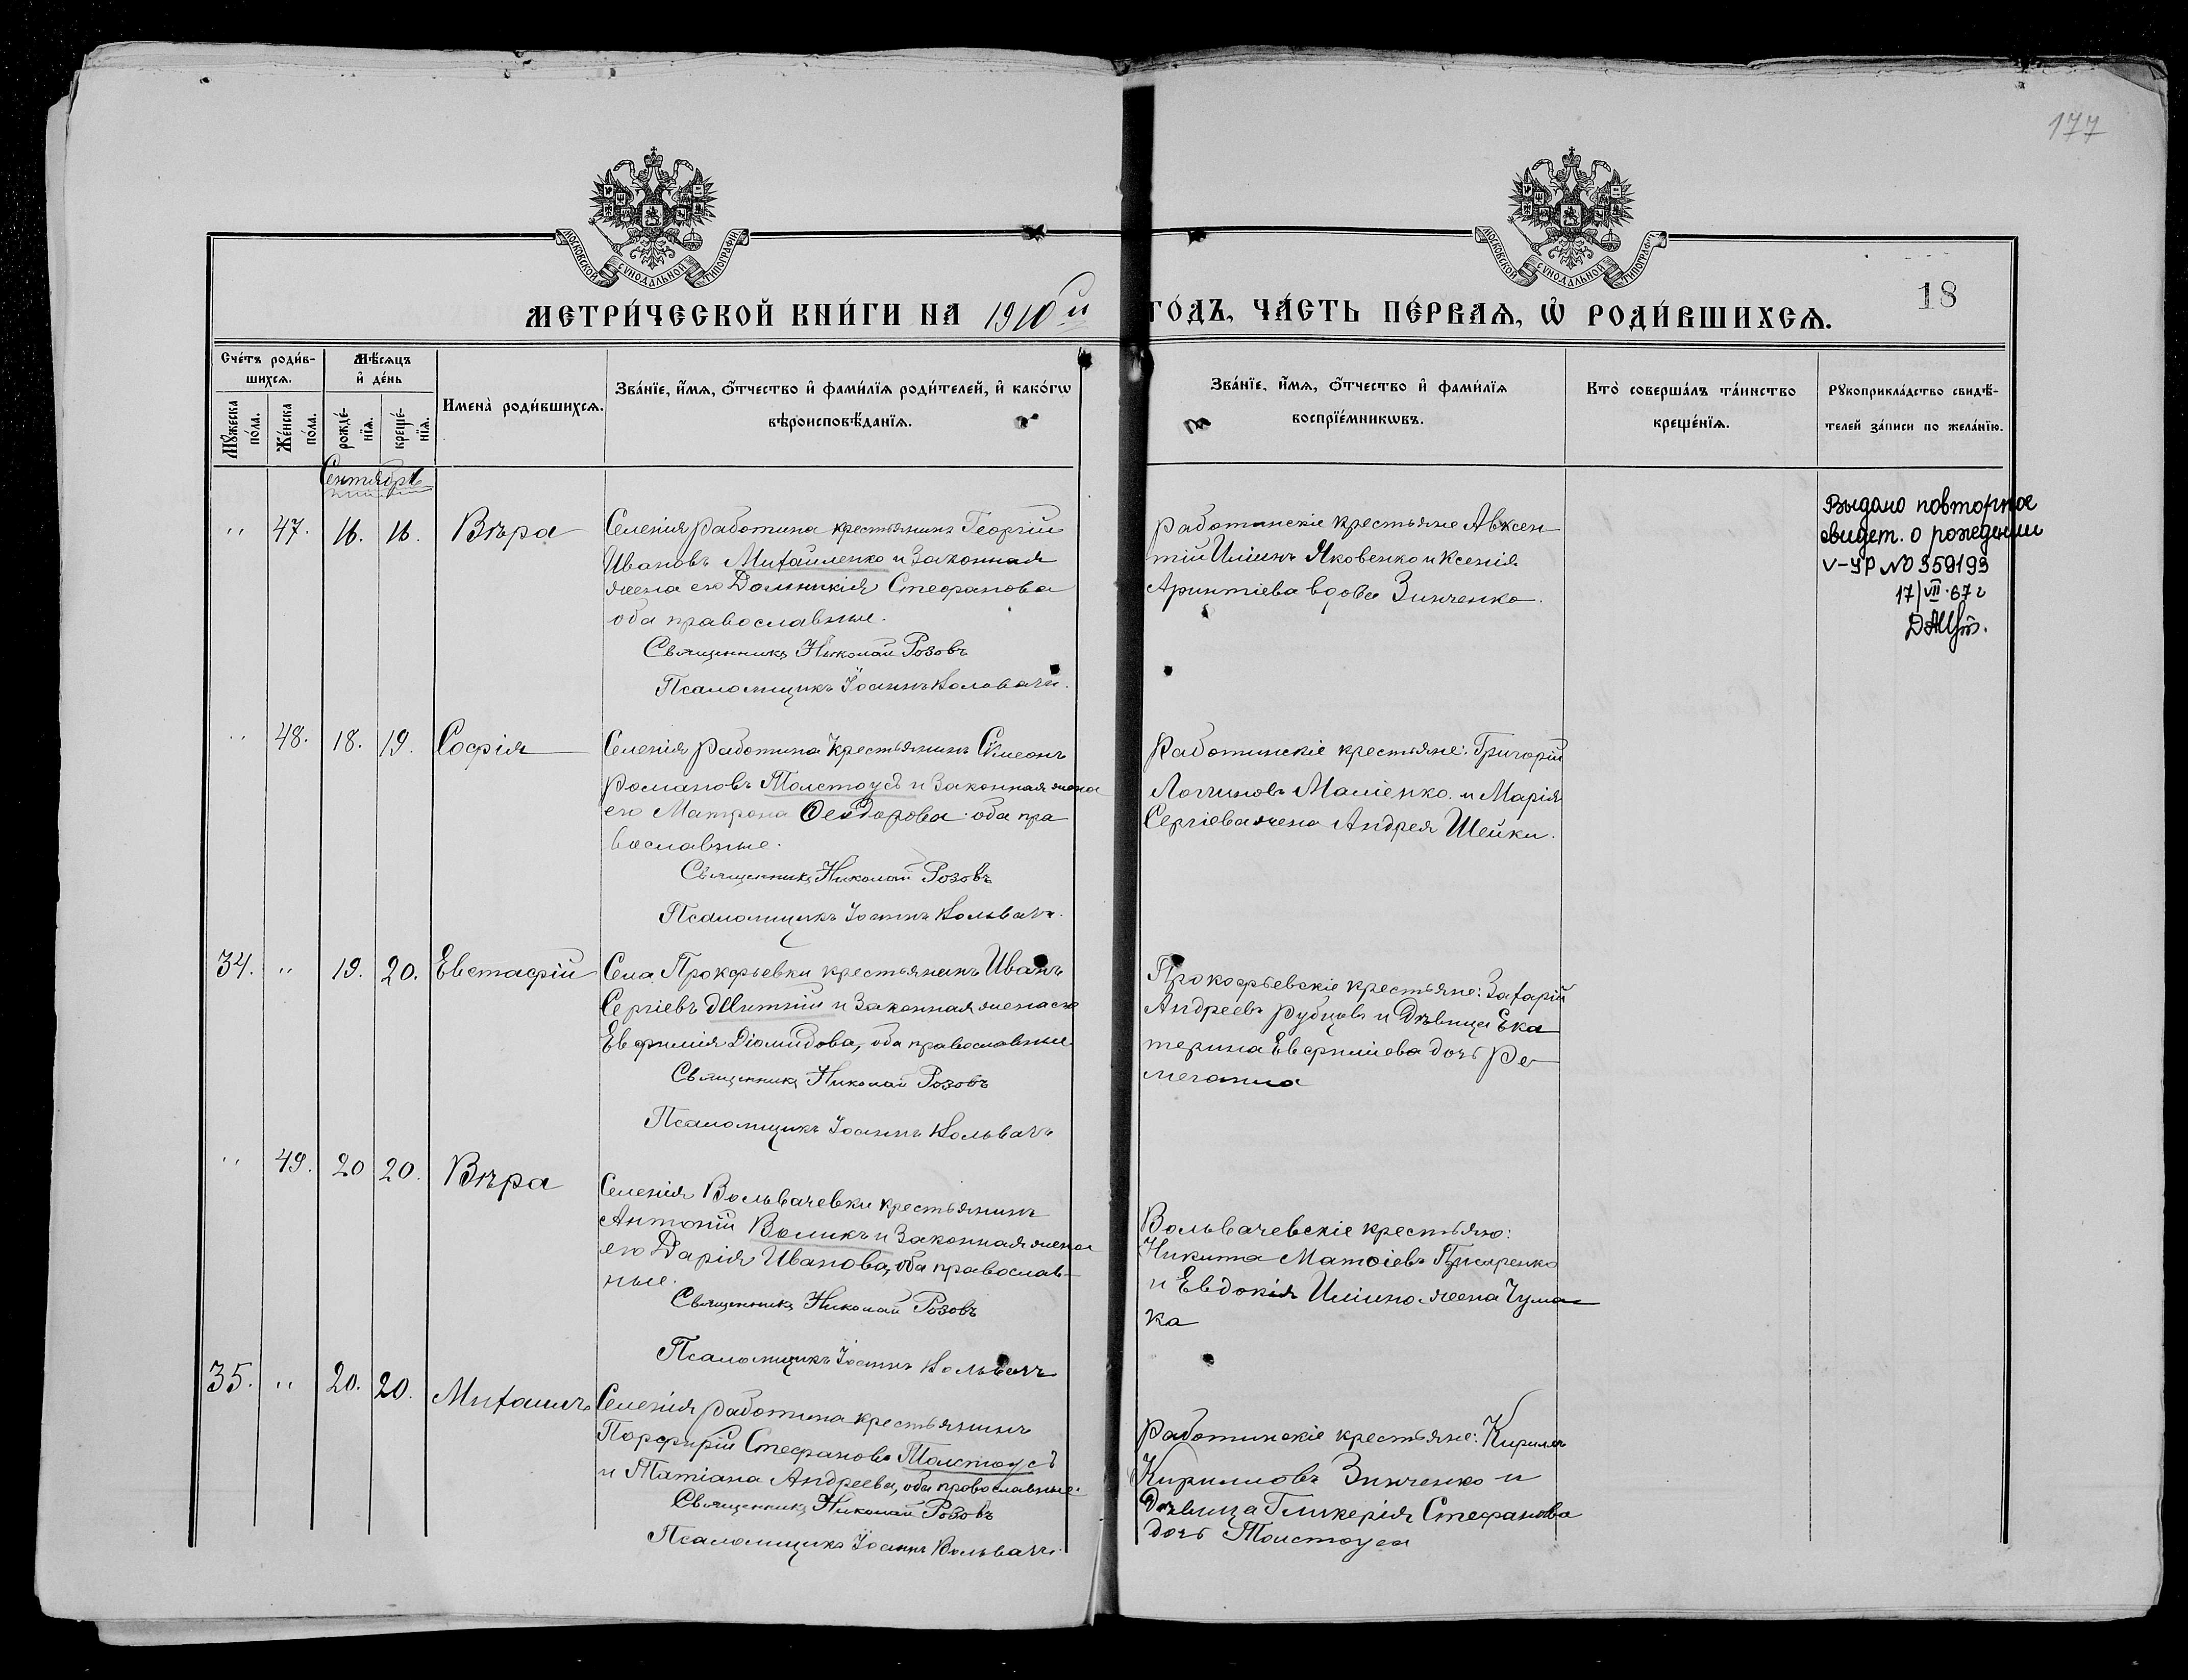 177
МОСКОВСКОЙ СУНОДАЛЬНОЙ ТИПОГРАФІИ
МОСКОВСКОЙ СУНОДАЛЬНОЙ ТИПОГРАФІИ
МЕТРИ́ЧЕСКОЙ КНИ́ГИ НА 1910й ГО́ДЪ, ЧА́СТЬ ПЕ́РВАѦ, Ѡ҆ РОДИ́ВШИХСѦ.
18
Сче́тъ роди́в-
шихсѧ.
Мꙋ́жеска по́ла.
Же́нска по́ла.
Мѣ́сѧцъ
и҆ де́нь
рожде́-
нїѧ.
креще́-
нїѧ.
Имена̀ роди́вшихсѧ.
Зва́нїе, и҆́мѧ, ѻ҆́тчество и҆ фами́лїѧ роди́телей, и҆ како́гѡ
вѣроисповѣ́данїѧ.
Зва́нїе, и҆́мѧ, ѻ҆́тчество и҆ фами́лїѧ
воспрїе́мникѡвъ.
Кто̀ соверша́лъ та́инство
креще́нїѧ.
Рꙋкоприкла́дство свидѣ́-
телей за́писи по жела́нїю.
Сентябрь
" 47. 16. 16. Вѣра
Селенія Работина крестьянинъ Георгій
Ивановъ Михайленко и законная
жена его Домникія Стефанова
оба православные.
Священникъ Николай Розовъ
Псаломщикъ Іоаннъ Вольвачъ.
Работинскіе крестьяне Авксен
тій Иліинъ Яковенко и Ксенія
вдова Зинченко.
Выдано повторное
свидет. о рождении
V-УР № 359193
17/VII·67г
" 48. 18. 19. Софія
Селенія Работина крестьянинъ Сѵмеонъ
Романовъ Толстоусъ и законная жена
его Матрона Ѳеодорова оба пра
вославные.
Священникъ Николай Розовъ
Псаломщикъ Іоаннъ Вольвачъ.
Работинскіе крестьяне: Григорій
Логиновъ Маліенко и Марія
Сергіева жена Андрея Шейки.
34. " 19. 20. Евстафій
Села Прокофьевки крестьянинъ Иванъ
Сергіевъ и законная жена его
Евфимія Діомидова, оба православные
Священникъ Николай Розовъ
Псаломщикъ Іоаннъ Вольвачъ
Прокофьевскіе крестьяне: Захарій
Андреевъ Рубцовъ и дѣвица Ека
терина Евфиміева дочь
" 49. 20 20. Вѣра
Селенія Вольвачевки крестьянинъ
Антоній Воликъ и законная жена
его Дарія Иванова, оба православ-
ные.
Священникъ Николай Розовъ
Псаломщикъ Іоаннъ Вольвачъ
Вольвачевскіе крестьяне:
Никита Матѳіевъ Писаренко
и Евдокія Иліина жена Чума-
ка
35. " 20. 20. Михаилъ
Селенія Работина крестьянинъ
Порфирій Стефановъ Толстоусъ
и Татіана Андреева, оба православные.
Священникъ Николай Розовъ
Псаломщикъ Іоаннъ Вольвачъ.
Работинскіе крестьяне: Кириллъ
Кирилловъ Зинченко и
дѣвица Гликерія Стефанова
дочь Толстоуса